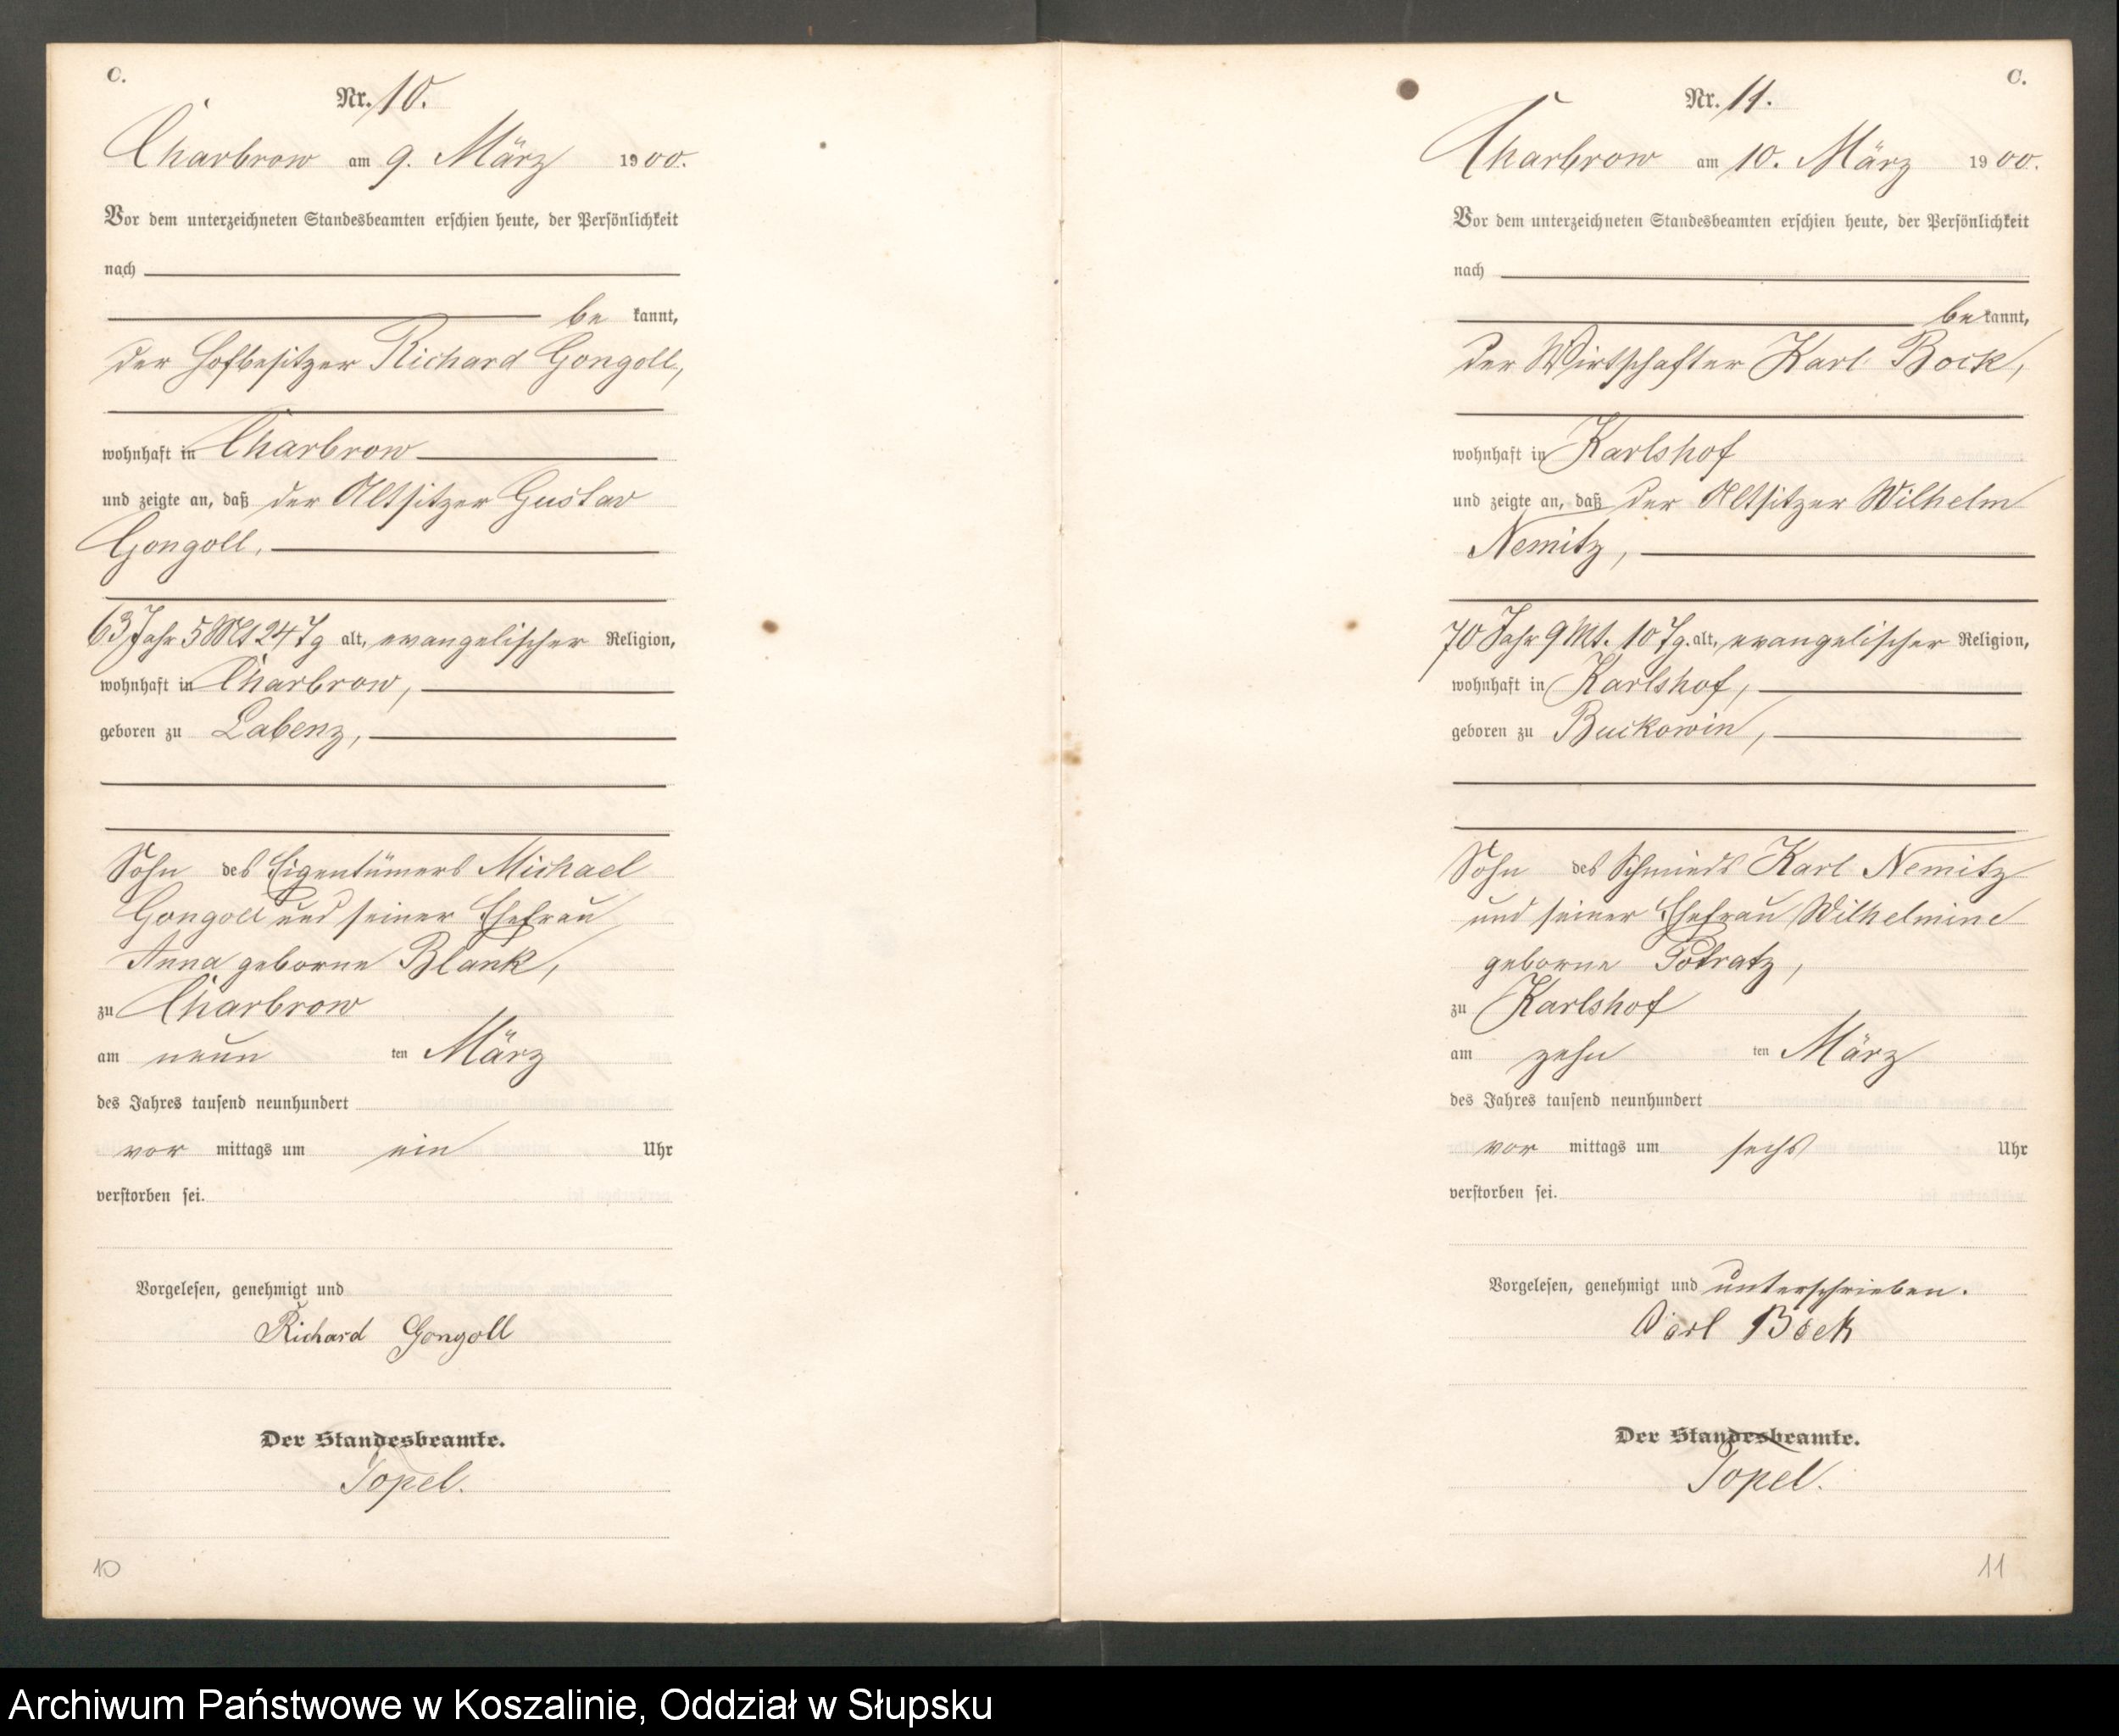 C.
Nr. 10.
Charbrow am 9. März 1900.
Vor dem unterzeichneten Standesbeamten erschien heute, der Persönlichkeit
nach
be kannt,
der Hofbesitzer Richard Gongoll,
wohnhaft in Charbrow
und zeigte an, daß der Altsitzer Gustav
Gongoll,
63 Jahr 5 Mt 24 Tg alt, evangelischer Religion,
wohnhaft in Charbrow,
geboren zu Labenz,
Sohn des Eigentümers Michael
Gongoll und seiner Ehefrau
Anna geborne Blank,
zu Charbrow
am neun ten März
des Jahres tausend neunhundert
vor mittags um ein Uhr
verstorben sei.
Vorgelesen, genehmigt und
Richard Gongoll
Der Standesbeamte.
Topel.
10
C.
Nr. 11.
Charbrow am 10. März 1900.
Vor dem unterzeichneten Standesbeamten erschien heute, der Persönlichkeit
nach
be kannt,
der Wirtschafter Karl Bock,
wohnhaft in Karlshof
und zeigte an, daß der Altsitzer Wilhelm
Nemitz,
70 Jahr 9 Mt. 10 Tg. alt, evangelischer Religion,
wohnhaft in Karlshof,
geboren zu Buckowin,
Sohn des Schmieds Karl Nemitz
und seiner Ehefrau Wilhelmine
geborne Potratz,
zu Karlshof
am zehn ten März
des Jahres tausend neunhundert
vor mittags um sechs Uhr
verstorben sei.
Vorgelesen, genehmigt und unterschrieben.
Carl Bock
Der Standesbeamte.
Topel.
11
Archiwum Państwowe w Koszalinie, Oddział w Słupsku